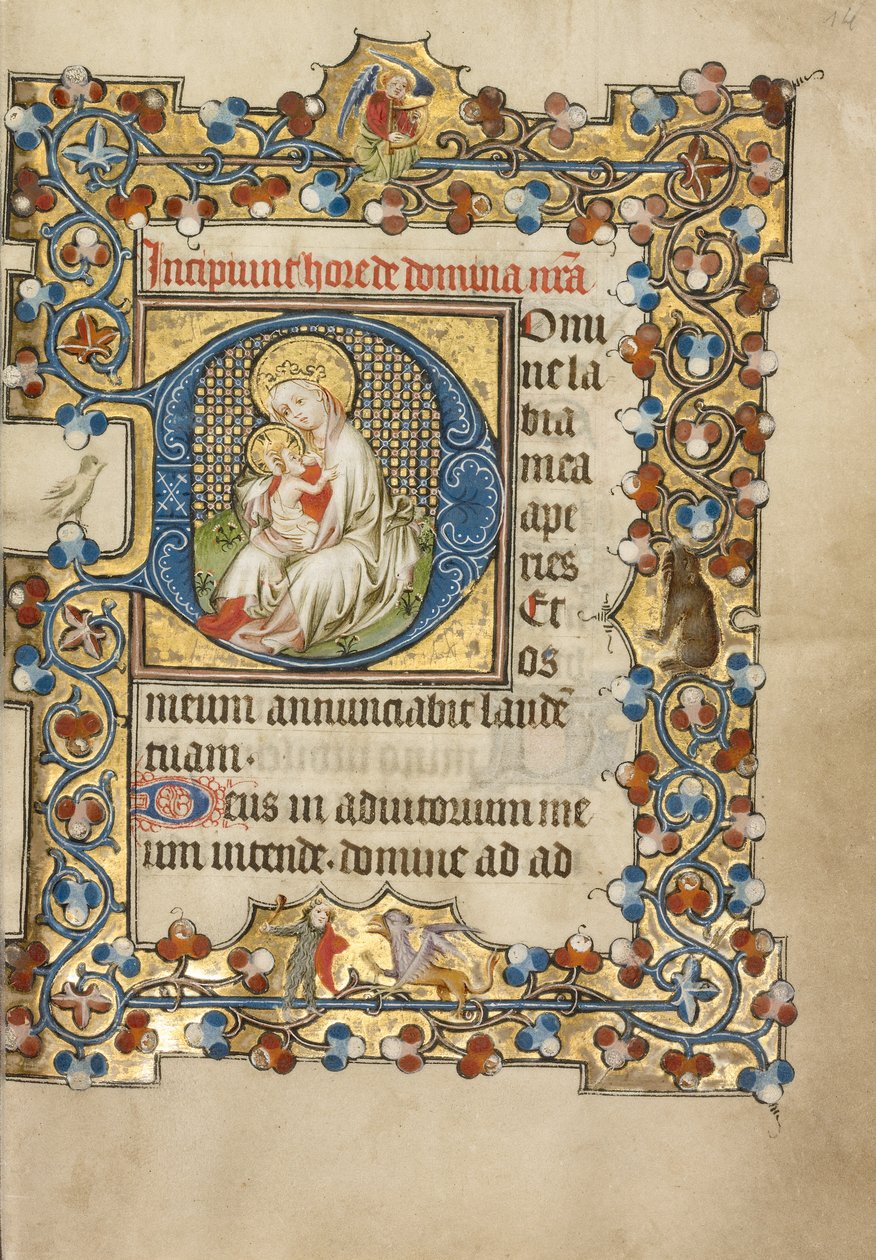 14
Incipiunt hore de domina nr̄a
DOmi
ne la
bia
mea
ape
ries
Et
os
meum annunciabit laudē
tuam.
Deus in adiutorium me
um intende. domine ad ad